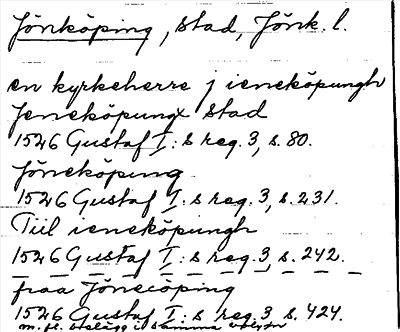 Jönköping, stad, Jönk. l.
en kyrkeherre j ieneköpungh
Jeneköpungx stad
1526 Gustaf I:s reg. 3, s. 80.
Jöneköping
1526 Gustaf I:s reg. 3, s. 231.
Tiil ieneköpungh
1526 Gustaf I:s reg. 3, s. 242.
fraa Jöneköping
1526 Gustaf I:s reg. 3, s. 424.
m. fl. belägg i samma volym